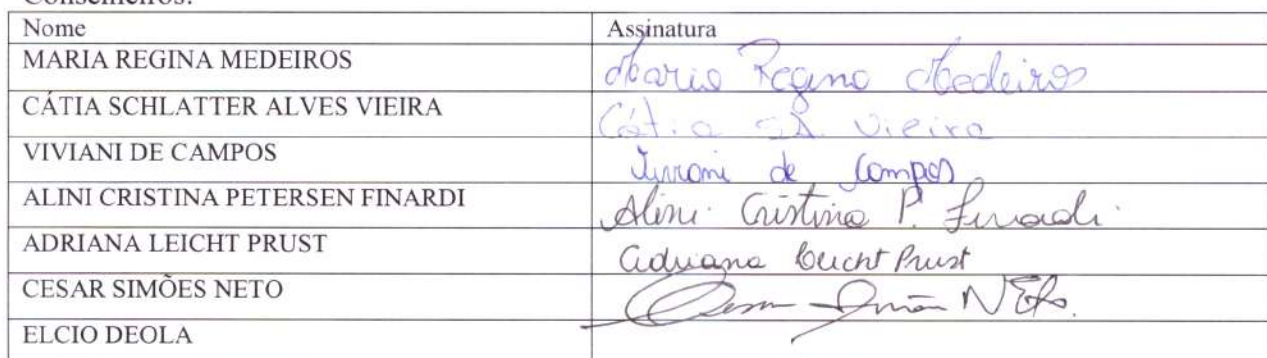 Conselheiros:
Nome Assinatura
MARIA REGINA MEDEIROS Maria Regina Medeiros
CÁTIA SCHLATTER ALVES VIEIRA Cátia S.A. Vieira
VIVIANI DE CAMPOS Viviani de Campos
ALINI CRISTINA PETERSEN FINARDI Alini Cristina P. Finardi
ADRIANA LEICHT PRUST Adriana Leicht Prust
CESAR SIMÕES NETO Cesar Simões Neto
ELCIO DEOLA